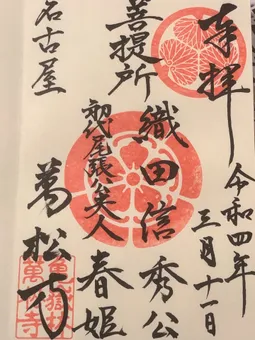 奉拝
令和四年
三月十一日
菩提所
織田信秀公
初代尾張藩矦夫人
春姫
名古屋
萬松寺
亀嶽林
萬松寺